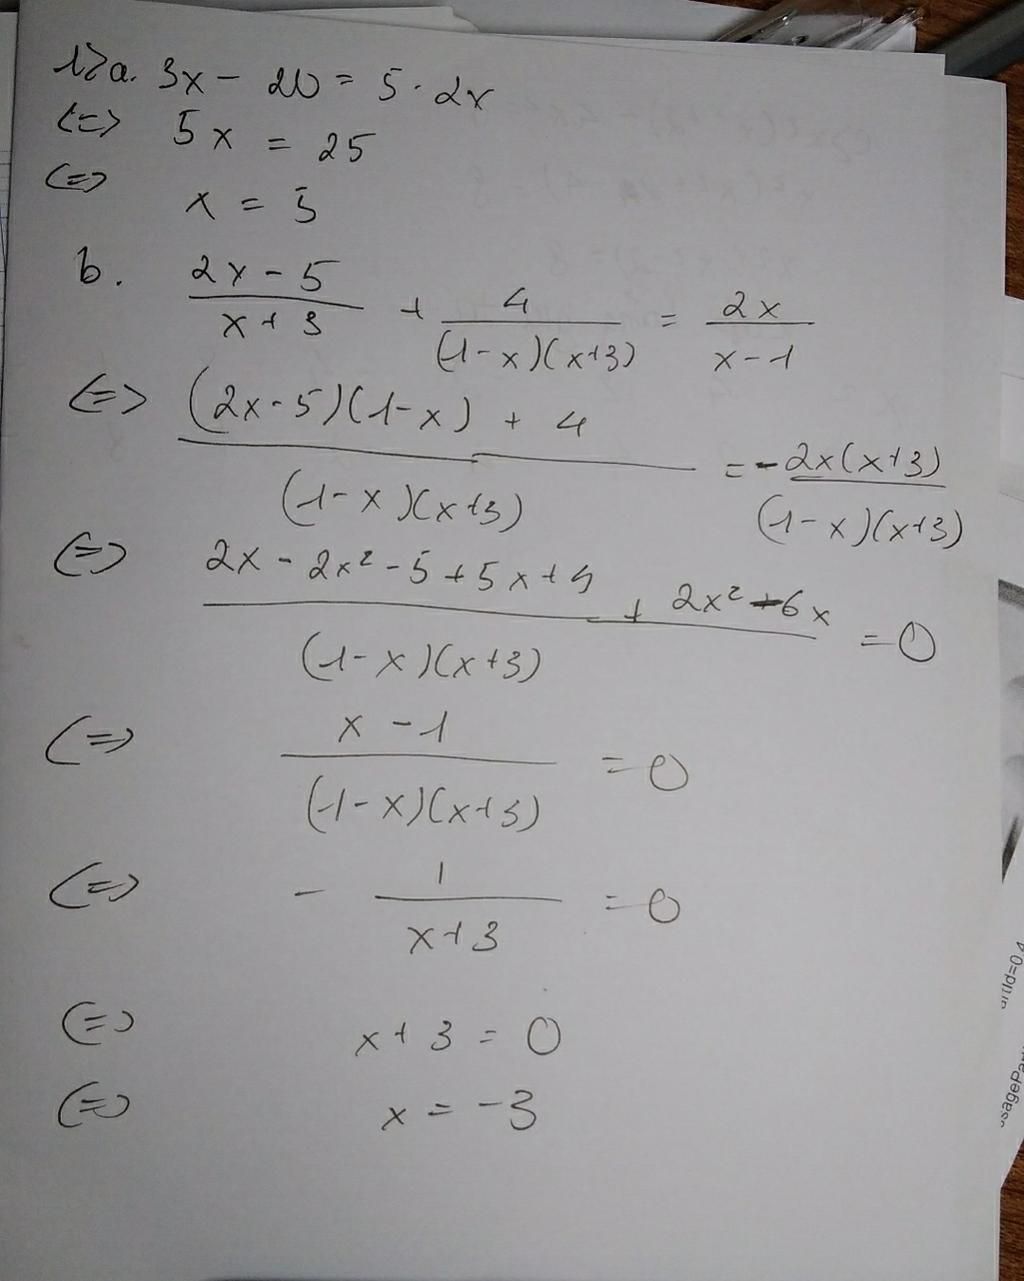 1>a. 3x - 20 = 5 · 2x
<=> 5x = 25
<=> x = 5
b. (2x - 5)/(x + 3) + 4/((1 - x)(x + 3)) = 2x/(x - 1)
<=> ((2x - 5)(1 - x) + 4)/((1 - x)(x + 3)) = - 2x(x + 3)/((1 - x)(x + 3))
<=> (2x - 2x² - 5 + 5x + 4 + 2x² - 6x)/((1 - x)(x + 3)) = 0
<=> (x - 1)/((1 - x)(x + 3)) = 0
<=> - 1/(x + 3) = 0
<=> x + 3 = 0
<=> x = -3